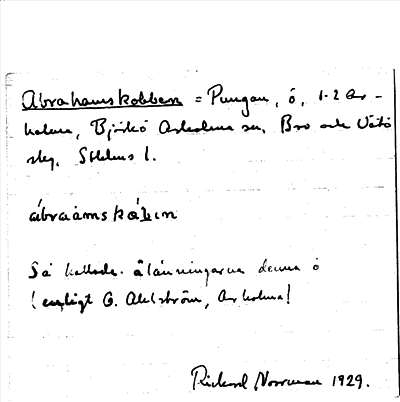 Abrahamskobben = Pungan, ö, 1-2 Ar-
holma, Björkö Arholma sn, Bro och Vätö
skg, Sthlms l.
ábraàmskåbın
Så kallade ålänningarna denna ö
(enligt G. Ahlström, Arholma)
Rickard Norrman 1929.